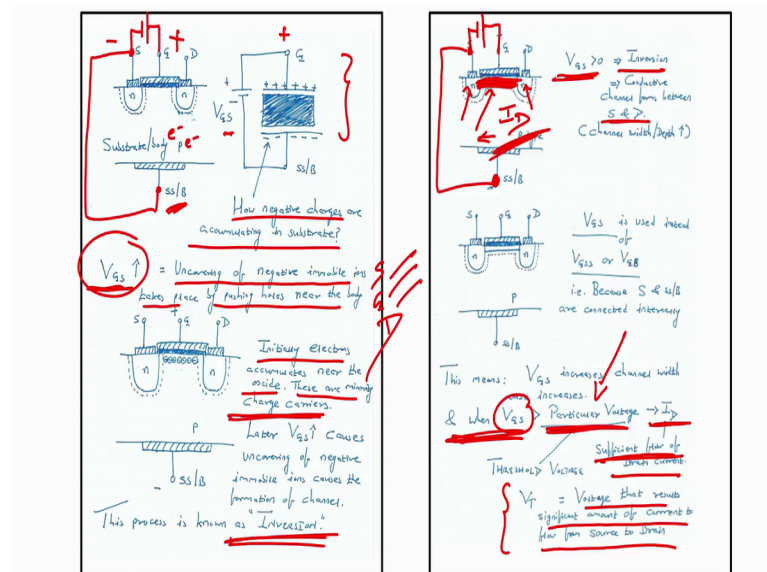 - +
S G D
n n
Substrate/body e- p e-
SS/B
+
G
+ + + + + +
+
VGS
-
- - - - - -
SS/B
How negative charges are
accumulating in substrate?
VGS ↑ = Uncovering of negative immobile ions
takes place by pushing holes near the body
S
G
D
+
S G D
n n
P
SS/B
Initially electrons
accumulates near the
oxide. These are minority
charge carriers.
Later VGS↑ causes
uncovering of negative
immobile ions causes the
formation of channel.
This process is known as "INVERSION."
S G D
n
ID
SS/B
VGS >0 ⇒ Inversion
⇒ Conductive
channel forms between
S & D.
(Channel width/Depth ↑)
S G D
n n
P
SS/B
VGS is used instead
of
VGSS or VGB
i.e. Because S & SS/B
are connected internally
This means: VGS increases channel width
increases.
& when VGS > Particular Voltage → ID
THRESHOLD VOLTAGE
Sufficient flow of
Drain current.
VT = Voltage that results
significant amount of current to
flow from source to Drain